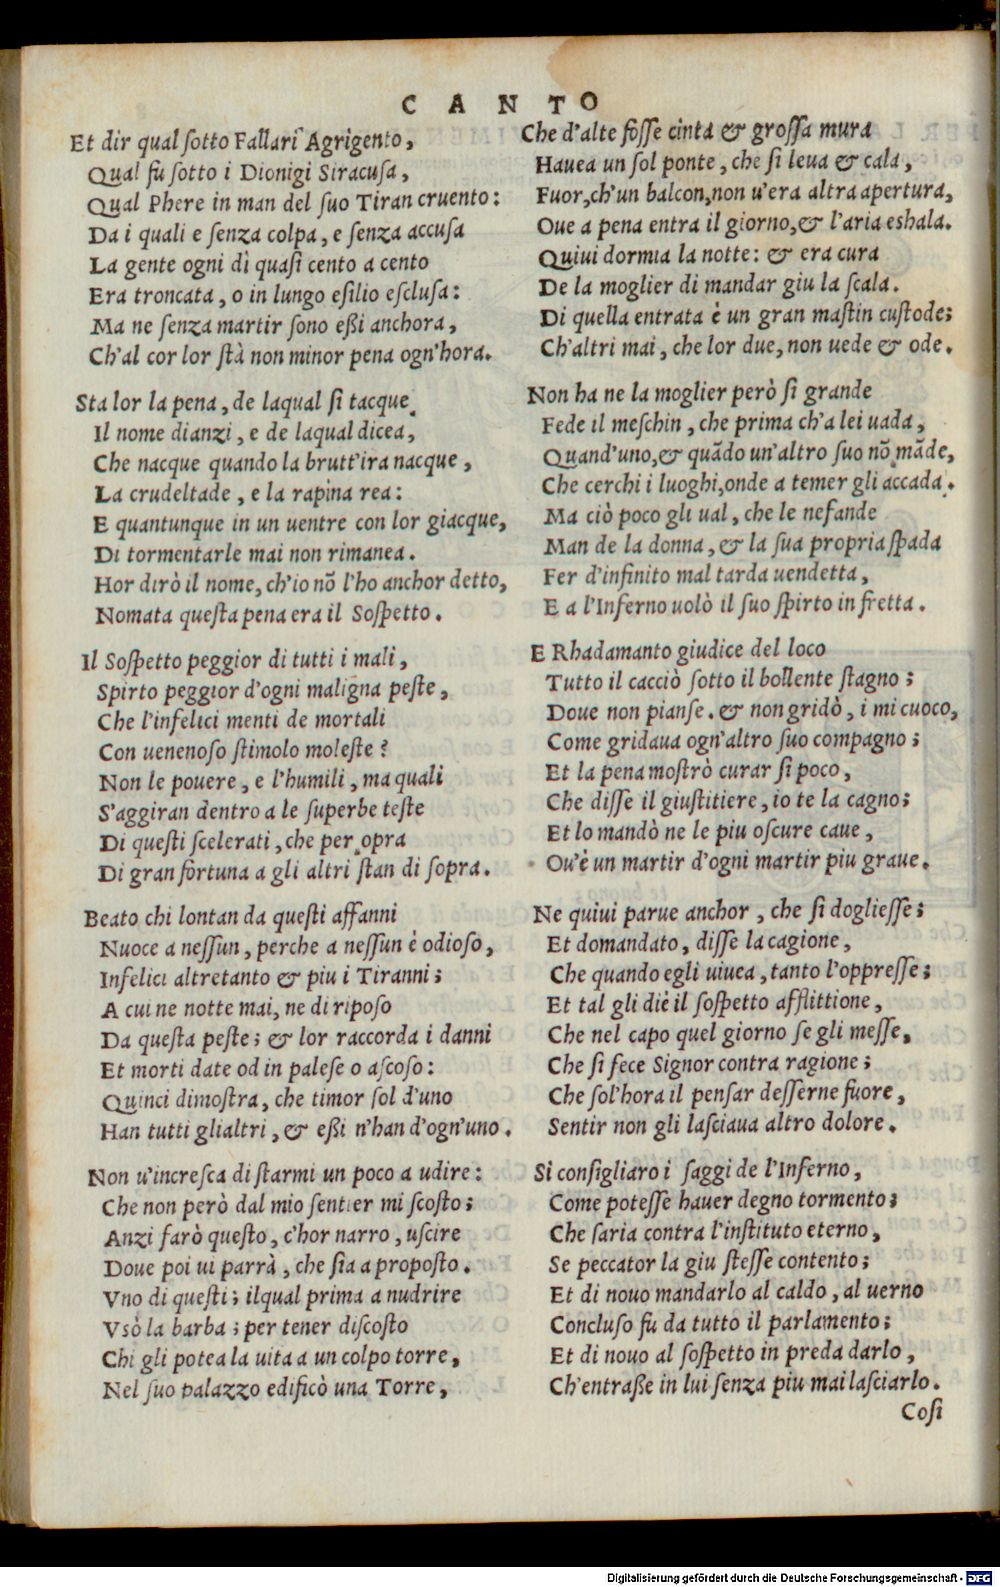 CANTO
Et dir qual ſotto Fallari Agrigento,
Qual fu ſotto i Dionigi Siracuſa,
Qual Phere in man del ſuo Tiran cruento:
Da i quali e ſenza colpa, e ſenza accuſa
La gente ogni dì quaſi cento a cento
Era troncata, o in lungo eſilio eſcluſa:
Ma ne ſenza martir ſono eßi anchora,
Ch'al cor lor ſtà non minor pena ogn'hora.
Sta lor la pena, de laqual ſi tacque
Il nome dianzi, e de laqual dicea,
Che nacque quando la brutt'ira nacque,
La crudeltade, e la rapina rea:
E quantunque in un uentre con lor giacque,
Di tormentarle mai non rimanea.
Hor dirò il nome, ch'io nō l'ho anchor detto,
Nomata queſta pena era il Soſpetto.
Il Soſpetto peggior di tutti i mali,
Spirto peggior d'ogni maligna peſte,
Che l'infelici menti de mortali
Con uenenoſo ſtimolo moleſte?
Non le pouere, e l'humili, ma quali
S'aggiran dentro a le ſuperbe teſte
Di queſti ſcelerati, che per opra
Di gran fortuna a gli altri ſtan di ſopra.
Beato chi lontan da queſti affanni
Nuoce a neſſun, perche a neſſun è odioſo,
Infelici altretanto & piu i Tiranni;
A cui ne notte mai, ne di ripoſo
Da queſta peſte; & lor raccorda i danni
Et morti date od in paleſe o aſcoſo:
Quinci dimoſtra, che timor ſol d'uno
Han tutti glialtri, & eßi n'han d'ogn'uno.
Non u'increſca di ſtarmi un poco a udire:
Che non però dal mio ſentier mi ſcoſto;
Anzi farò queſto, c'hor narro, uſcire
Doue poi ui parrà, che ſia a propoſto.
Vno di queſti; ilqual prima a nudrire
Vsò la barba; per tener diſcoſto
Chi gli potea la uita a un colpo torre,
Nel ſuo palazzo edificò una Torre,
Che d'alte foſſe cinta & groſſa mura
Hauea un ſol ponte, che ſi leua & cala,
Fuor, ch'un balcon, non u'era altra apertura,
Oue a pena entra il giorno, & l'aria eshala.
Quiui dormia la notte: & era cura
De la moglier di mandar giu la ſcala.
Di quella entrata è un gran maſtin cuſtode;
Ch'altri mai, che lor due, non uede & ode.
Non ha ne la moglier però ſi grande
Fede il meſchin, che prima ch'a lei uada,
Quand'uno, & quādo un'altro ſuo nō māde,
Che cerchi i luoghi, onde a temer gli accada.
Ma ciò poco gli ual, che le nefande
Man de la donna, & la ſua propria ſpada
Fer d'infinito mal tarda uendetta,
E a l'Inferno uolò il ſuo ſpirto in fretta.
E Rhadamanto giudice del loco
Tutto il cacciò ſotto il bollente ſtagno;
Doue non pianſe. & non gridò, i mi cuoco,
Come gridaua ogn'altro ſuo compagno;
Et la pena moſtrò curar ſi poco,
Che diſſe il giuſtitiere, io te la cagno;
Et lo mandò ne le piu oſcure caue,
Ou'è un martir d'ogni martir piu graue.
Ne quiui parue anchor, che ſi doglieſſe;
Et domandato, diſſe la cagione,
Che quando egli uiuea, tanto l'oppreſſe;
Et tal gli diè il ſoſpetto afflittione,
Che nel capo quel giorno ſe gli meſſe,
Che ſi fece Signor contra ragione;
Che ſol'hora il penſar deſſerne fuore,
Sentir non gli laſciaua altro dolore.
Si conſigliaro i ſaggi de l'Inferno,
Come poteſſe hauer degno tormento;
Che ſaria contra l'inſtituto eterno,
Se peccator la giu ſteſſe contento;
Et di nouo mandarlo al caldo, al uerno
Concluſo fu da tutto il parlamento;
Et di nouo al ſoſpetto in preda darlo,
Ch'entraße in lui ſenza piu mai laſciarlo.
Coſi
Digitalisierung gefördert durch die Deutsche Forschungsgemeinschaft - DFG